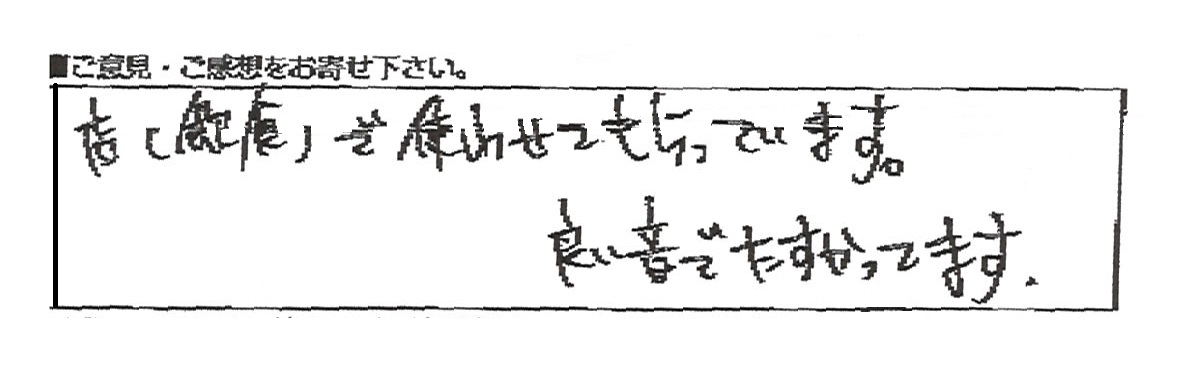 ■ご意見・ご感想をお寄せ下さい。
店()で使わせてもらっています。
良い音でたすかってます.